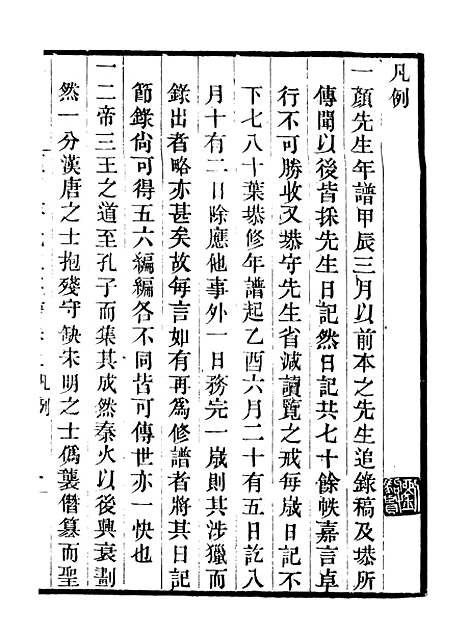 凡例
一顏先生年譜甲辰三月以前本之先生追錄稿及塨所
傳聞以後皆採先生日記然日記共七十餘帙嘉言卓
行不可勝收又塨守先生省減讀覽之戒每歲日記不
下七八十葉塨修年譜起乙酉六月二十有五日訖八
月十有二日除應他事外一日務完一歲則其涉獵而
錄出者略亦甚矣故每言如有再為修譜者將其日記
節錄尙可得五六編編各不同皆可傳世亦一快也
一二帝三王之道至孔子而集其成然秦火以後興衰劃
然一分漢唐之士抱殘守缺宋明之士僞襲僭篡而聖
凡例